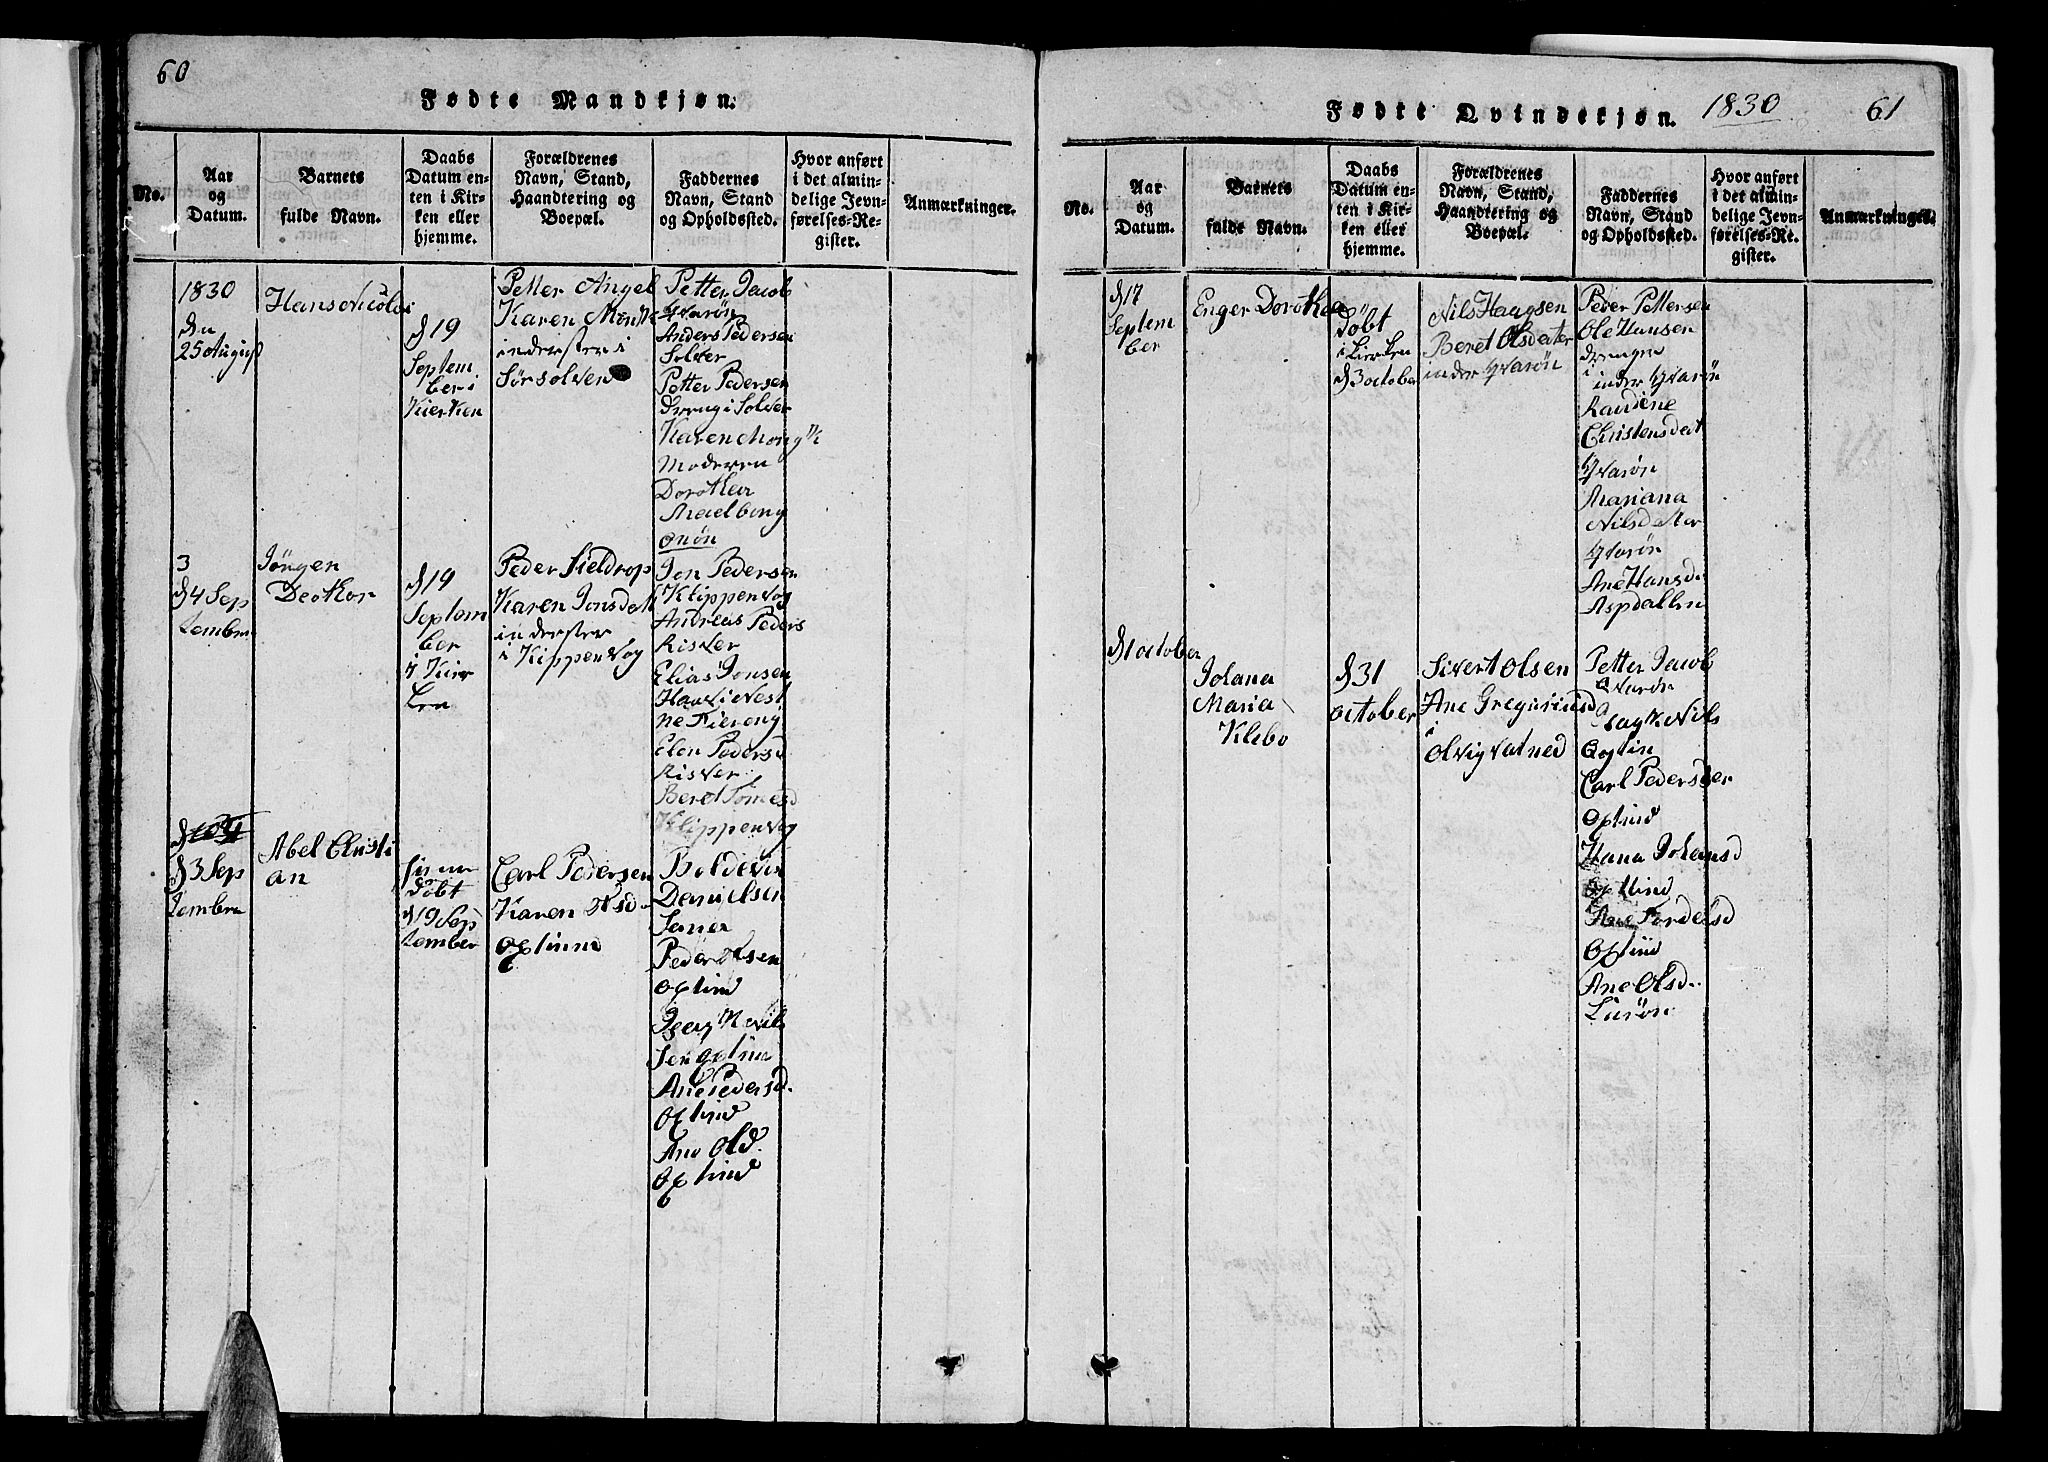 60
Fødte Mandkjøn.
No.
Aar
og
Datum.
Barnets
fulde Navn.
Daabs
Datum en-
ten i Kir-
ken eller
hjemme.
Forældrenes
Navn, Stand,
Haandtering og
Boepæl.
Faddernes
Navn, Stand
og Opholdssted.
Hvor anført
i det almin-
delige Jevn-
førelses-Re-
gister.
Anmærkninger.
1830
den
25 August
Hans Nicolai
d 19
Septem
ber i
Kierken
Petter Angel
Karen
inderster i
Sørsolven
Petter Jacob
Qvarøn
Anders Pedersen
Solver
Petter Pedersen
dreng i Solver
Karen
Moderen
Dorothea
Onøn
3
d 4 Sep
tember
Jørgen
Deothor
d 19
Septem
ber
i Kir
ken
Peder Fieldrop
Karen Jonsdatt
inderster
i Kippenvog
Jon Pedersen
Klippenvog
Andreas Peders
Risver
Elias Jonsen
Elen Pedersd
Risver
Beret
Klippenvog
d 3 Sep
tember
Abel Christi
an
døbt
d 19 Sep
tember
Carl Pedersen
Karen Olsd.
Optinnd
Boldevin
Danielsen
Peder Olsen
Optind
Nils
sen Optind
Ane Pedersd.
Optind
Ane Old.
Optind
Fødte Qvindekjøn.
1830
61
No.
Aar
og
Datum.
Barnets
fulde Navn.
Daabs
Datum en-
ten i Kir-
ken eller
hjemme.
Forældrenes
Navn, Stand,
Haandtering og
Boepæl.
Faddernes
Navn, Stand
og Opholdssted.
Hvor anført
i det almin-
delige Jevn-
førelses-Re-
gister.
Anmærkninger.
d 17
Septem
ber
Enger Dorothea
døbt
i kirken
d 3 october
Nils Haagsen
Beret Olsdatter
inder Qvarøn
Peder Pettersen
Ole Hansen
drenge
i
inder Qvarøn
Christensdat
Qvarøn
Mariana
Nilsdatter
Qvarøn
Ane Hansd.
Aspdallen
d 1 october
Johana
Maria
Klebo
d 31
october
Sivert Olsen
Ane Gregoriusd
i
Olvigvatned
Petter Jacob
Qvarøn
Nils
Optin
Carl Peders
Optind
Hana Johansd
Optind
Ane
Optiid
Ane Olsd.
Lurøn